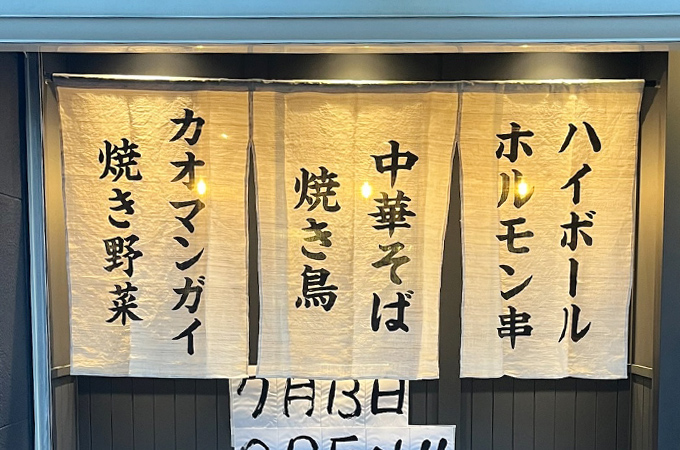 ハイボール
ホルモン串
中華そば
焼き鳥
カオマンガイ
焼き野菜
7月13日
OPEN!!